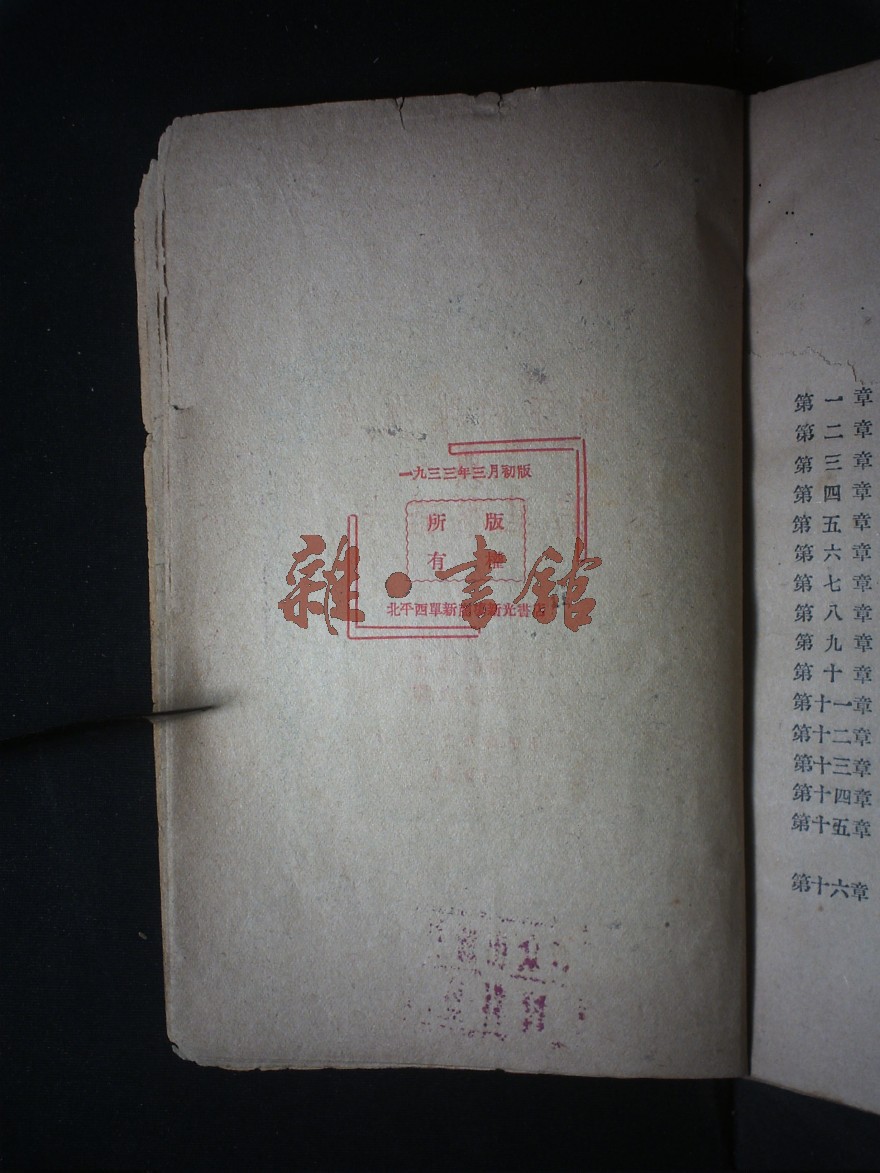 一九三三年三月初版
所 版
有 權
雜·書館
北平西單新商場新光書店
第一章
第二章
第三章
第四章
第五章
第六章
第七章
第八章
第九章
第十章
第十一章
第十二章
第十三章
第十四章
第十五章
第十六章